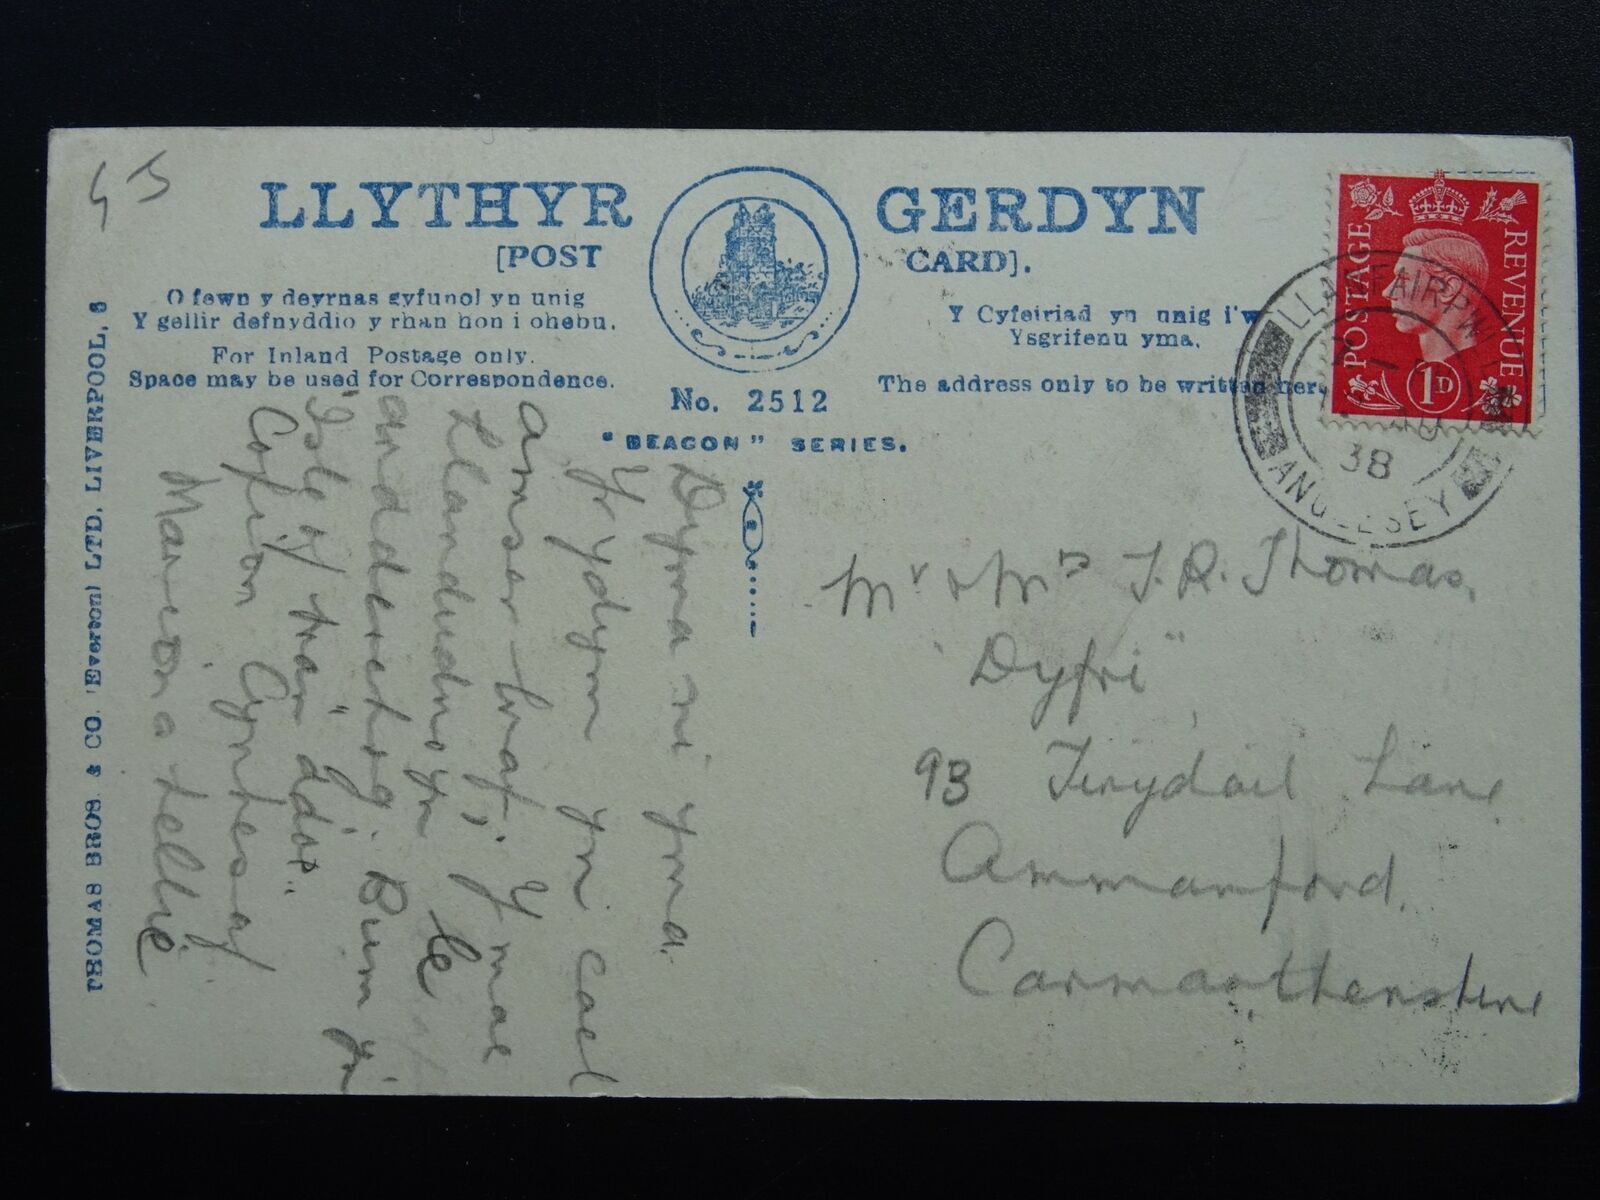 45
LLYTHYR GERDYN
[POST CARD].
O fewn y deyrnas gyfunol yn unig
Y gellir defnyddio y rhan hon i ohebu.
For Inland Postage only.
Space may be used for Correspondence.
Y Cyfeiriad yn unig i'w
Ysgrifenu yma.
The address only to be written here
No. 2512
"BEACON" SERIES.
THOMAS BROS. & CO. (Everton) LTD, LIVERPOOL, 6
POSTAGE REVENUE
1D
LLANFAIRPW
38
ANGLESEY
Dyma ni yma.
Yr ydym yn cael
amser braf; y mae
Llandudno yn le
ardderchog. Bum yn
"Isle of Man" ddoe.
Cofion Cynhesaf
Marion a Nellie.
Mr & Mrs T. R. Thomas,
"Dyfri"
93 Tirydail Lane
Ammanford,
Carmarthenshire